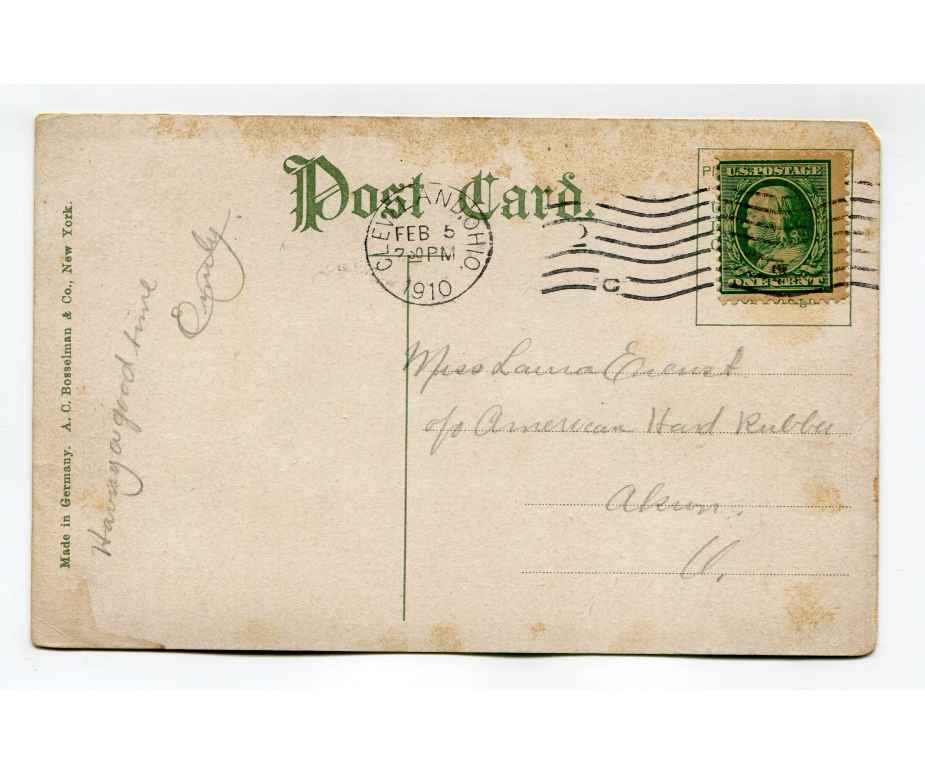 Post Card.
CLEVELAND, OHIO.
FEB 5
PM
1910
U.S. POSTAGE
ONE CENT
Miss Laura
c/o American Hard Rubber
Akron,
O.
Having a good time
Made in Germany. A. C. Bosselman & Co., New York.